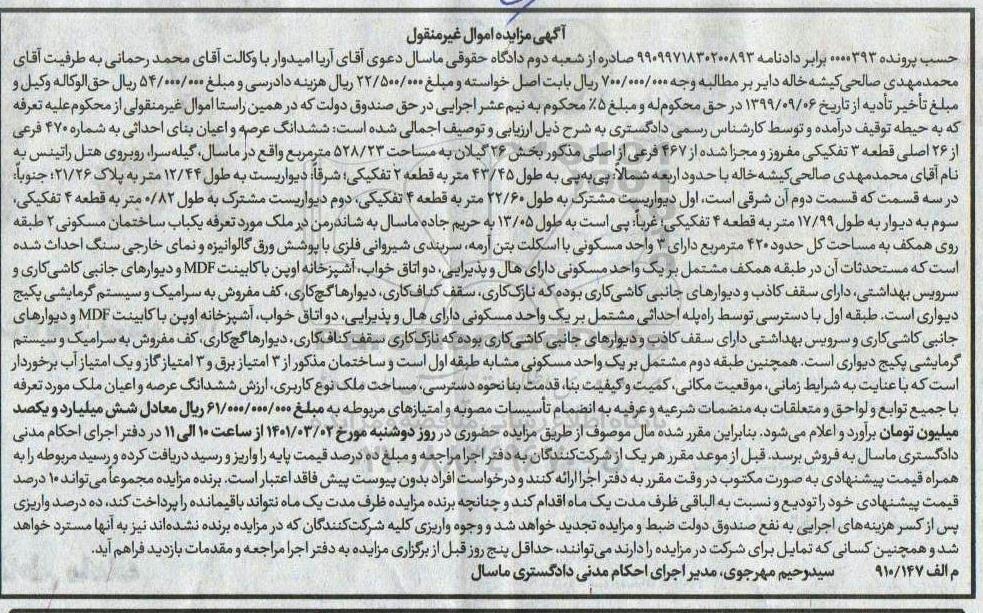 آگهی مزایده اموال غیرمنقول
حسب پرونده ۰۰۰۰۳۹۳ برابر دادنامه ۹۹۰۹۹۷۱۸۳۰۲۰۰۸۹۳ صادره از شعبه دوم دادگاه حقوقی ماسال دعوی آقای آریا امیدوار با وکالت آقای محمد رحمانی به طرفیت آقای
محمدمهدی صالحی‌کیشه‌خاله دایر بر مطالبه وجه ۷۰۰/۰۰۰/۰۰۰ ریال بابت اصل خواسته و مبلغ ۲۲/۵۰۰/۰۰۰ ریال هزینه دادرسی و مبلغ ۵۴/۰۰۰/۰۰۰ ریال حق‌الوکاله وکیل و
مبلغ تأخیر تأدیه از تاریخ ۱۳۹۹/۰۹/۰۶ در حق محکوم‌له و مبلغ ۵٪ محکوم به نیم‌عشر اجرایی در حق صندوق دولت که در همین راستا اموال غیرمنقولی از محکوم‌علیه تعرفه
که به حیطه توقیف درآمده و توسط کارشناس رسمی دادگستری به شرح ذیل ارزیابی و توصیف اجمالی شده است: ششدانگ عرصه و اعیان بنای احداثی به شماره ۴۷۰ فرعی
از ۲۶ اصلی قطعه ۳ تفکیکی مفروز و مجزا شده از ۴۶۷ فرعی از اصلی مذکور بخش ۲۶ گیلان به مساحت ۵۲۸/۲۳ مترمربع واقع در ماسال، گیله‌سرا، روبروی هتل راتینس به
نام آقای محمدمهدی صالحی‌کیشه‌خاله با حدود اربعه شمالاً: پی‌به‌پی به طول ۴۳/۴۵ متر به قطعه ۲ تفکیکی؛ شرقاً: دیواریست به طول ۱۲/۴۴ متر به پلاک ۲۱/۲۶؛ جنوباً:
در سه قسمت که قسمت دوم آن شرقی است، اول دیواریست مشترک به طول ۲۲/۶۰ متر به قطعه ۴ تفکیکی، دوم دیواریست مشترک به طول ۰/۸۲ متر به قطعه ۴ تفکیکی،
سوم به دیوار به طول ۱۷/۹۹ متر به قطعه ۴ تفکیکی؛ غرباً: پی است به طول ۱۳/۰۵ به حریم جاده ماسال به شاندرمن در ملک مورد تعرفه یکباب ساختمان مسکونی ۲ طبقه
روی همکف به مساحت کل حدود ۴۲۰ مترمربع دارای ۳ واحد مسکونی با اسکلت بتن آرمه، سربندی شیروانی فلزی با پوشش ورق گالوانیزه و نمای خارجی سنگ احداث شده
است که مستحدثات آن در طبقه همکف مشتمل بر یک واحد مسکونی دارای هال و پذیرایی، دو اتاق خواب، آشپزخانه اوپن با کابینت MDF و دیوارهای جانبی کاشی‌کاری و
سرویس بهداشتی، دارای سقف کاذب و دیوارهای جانبی کاشی‌کاری بوده که نازک‌کاری، سقف کناف‌کاری، دیوارها گچ‌کاری، کف مفروش به سرامیک و سیستم گرمایشی پکیج
دیواری است. طبقه اول با دسترسی توسط راه‌پله احداثی مشتمل بر یک واحد مسکونی دارای هال و پذیرایی، دو اتاق خواب، آشپزخانه اوپن با کابینت MDF و دیوارهای
جانبی کاشی‌کاری و سرویس بهداشتی دارای سقف کاذب و دیوارهای جانبی کاشی‌کاری بوده که نازک‌کاری سقف کناف‌کاری، دیوارها گچ‌کاری، کف مفروش به سرامیک و سیستم
گرمایشی پکیج دیواری است. همچنین طبقه دوم مشتمل بر یک واحد مسکونی مشابه طبقه اول است و ساختمان مذکور از ۳ امتیاز برق و ۳ امتیاز گاز و یک امتیاز آب برخوردار
است که با عنایت به شرایط زمانی، موقعیت مکانی، کمیت و کیفیت بنا، قدمت بنا نحوه دسترسی، مساحت ملک نوع کاربری، ارزش ششدانگ عرصه و اعیان ملک مورد تعرفه
با جمیع توابع و لواحق و متعلقات به منضمات شرعیه و عرفیه به انضمام تأسیسات مصوبه و امتیازهای مربوطه به مبلغ ۶۱/۰۰۰/۰۰۰/۰۰۰ ریال معادل شش میلیارد و یکصد
میلیون تومان برآورد و اعلام می‌شود. بنابراین مقرر شده مال موصوف از طریق مزایده حضوری در روز دوشنبه مورخ ۱۴۰۱/۰۳/۰۲ از ساعت ۱۰ الی ۱۱ در دفتر اجرای احکام مدنی
دادگستری ماسال به فروش برسد. قبل از موعد مقرر هر یک از شرکت‌کنندگان به دفتر اجرا مراجعه و مبلغ ده درصد قیمت پایه را واریز و رسید دریافت کرده و رسید مربوطه را به
همراه قیمت پیشنهادی به صورت مکتوب در وقت مقرر به دفتر اجرا ارائه کنند و درخواست افراد بدون پیوست پیش فاقد اعتبار است. برنده مزایده مجموعاً می‌تواند ۱۰ درصد
قیمت پیشنهادی خود را تودیع و نسبت به الباقی ظرف مدت یک ماه اقدام کند و چنانچه برنده مزایده ظرف مدت یک ماه نتواند باقیمانده را پرداخت کند، ده درصد واریزی
پس از کسر هزینه‌های اجرایی به نفع صندوق دولت ضبط و مزایده تجدید خواهد شد و وجوه واریزی کلیه شرکت‌کنندگان که در مزایده برنده نشده‌اند نیز به آنها مسترد خواهد
شد و همچنین کسانی که تمایل برای شرکت در مزایده را دارند می‌توانند، حداقل پنج روز قبل از برگزاری مزایده به دفتر اجرا مراجعه و مقدمات بازدید فراهم آید.
م الف ۹۱۰/۱۴۷ سیدرحیم مهرجوی، مدیر اجرای احکام مدنی دادگستری ماسال